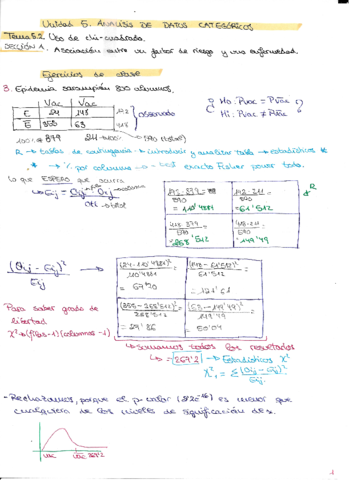 Unidad 5. ANÁLISIS DE DATOS CATEGÓRICOS
Tema 5.2. Uso de chi-cuadrado.
SECCIÓN 1. Asociación entre un factor de riesgo y una enfermedad.
Ejercicios de clase
3. Epidemia sarampión 800 alumnos.
Vac Vac
E 24 148 172 observado
E 355 63 418
379 211 590 (total)
Ho: Pvac = Pvac
H1: Pvac ≠ Pvac
R → tablas de contingencia → introducir y analizar tabla → estadísticos
% por columnas test exacto Fisher
Lo que ESPERO que ocurra
Eij = Oi. O.j
total
172·379 / 590 = 110'4881
172·211 / 590 = 61'512
418·379 / 590 = 268'512
418·211 / 590 = 149'49
(Oij - Eij)² / Eij →
(24-110'4881)² / 110'4881 = 67'70
(148-61'512)² / 61'512 = 121'61
(355-268'512)² / 268'512 = 27'86
(63-149'49)² / 149'49 = 50'04
Para saber grado de
libertad
X² → (filas-1)(columnas-1)
→ Sumamos todos los resultados
→ 267'2 → Estadístico X²
X²₁ = Σ(Oij - Eij)² / Eij
- Rechazamos, porque el p-valor (2'2e⁻¹⁶) es menor que
cualquiera de los niveles de significación de α.
267'2